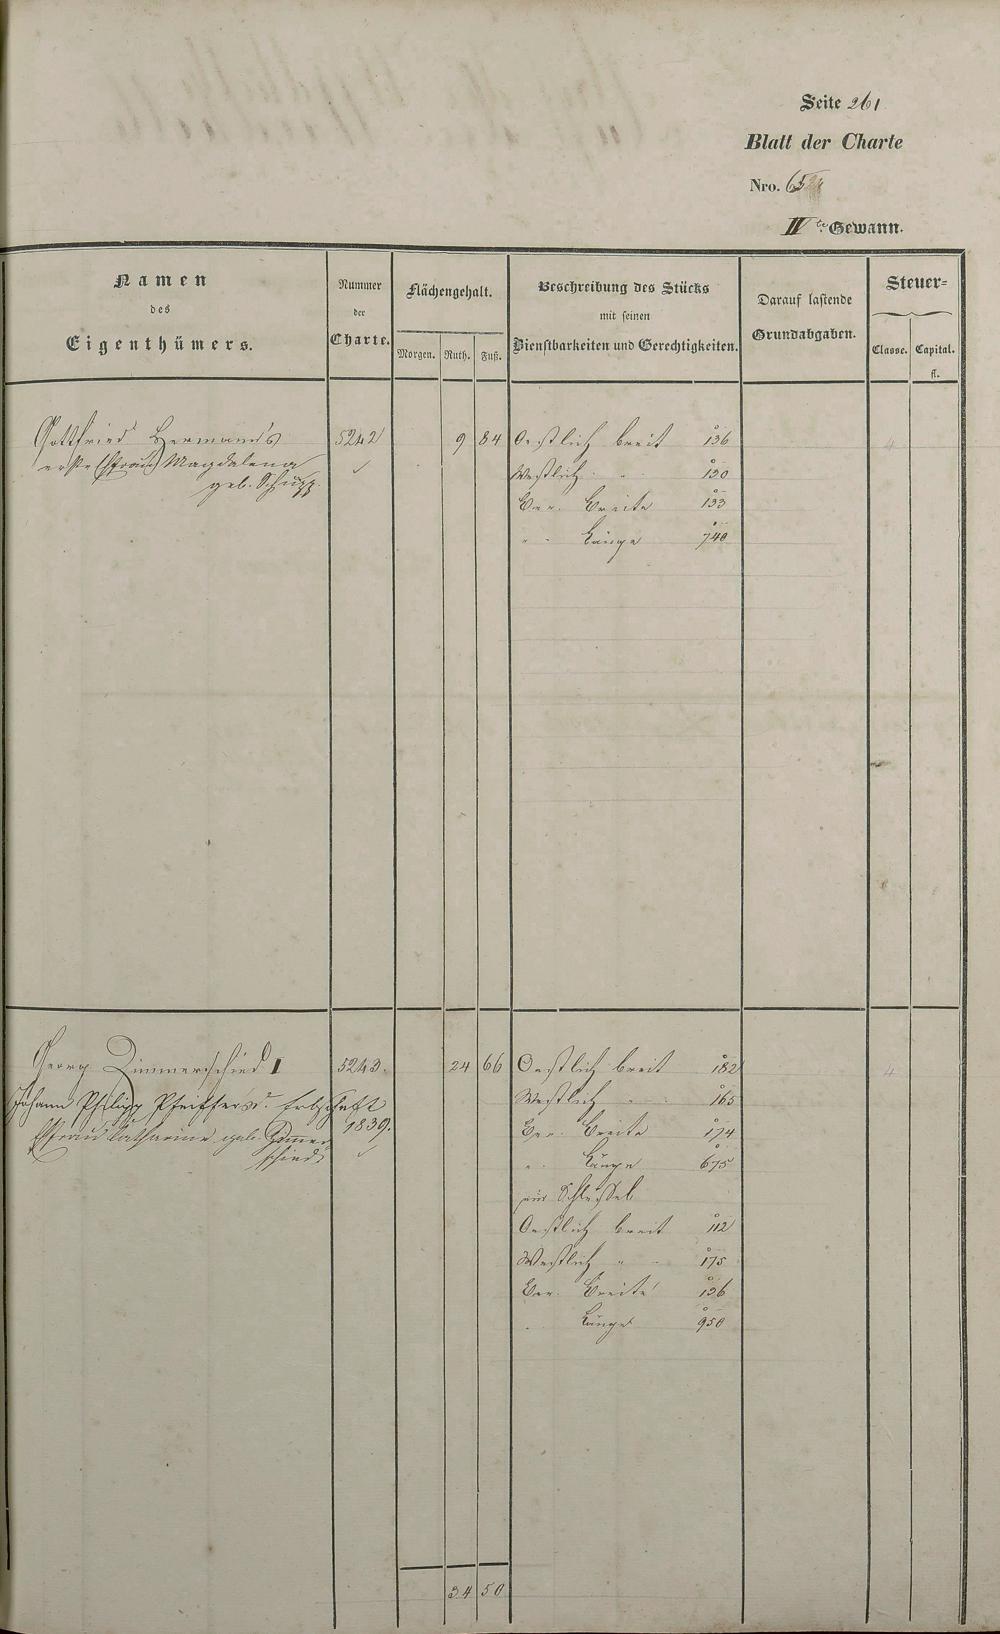 Seite 261
Blatt der Charte
Nro. 65
IV te Gewann.
Namen
des
Eigenthümers.
Nummer
der
Charte.
Flächengehalt.
Morgen. Ruth. Fuß.
Beschreibung des Stücks
mit seinen
Dienstbarkeiten und Gerechtigkeiten.
Darauf lastende
Grundabgaben.
Steuer-
Classe. Capital.
fl.
Gottfried Hermann's 5242 9 84 Oestlich breit 136 4
erste Ehfrau Magdalena Westlich " 130
geb. Schupp.
Ver. Breite 133
" Länge 740
Georg Zimmerschied I 5243. 24 66 Oestlich breit 182 4
Johann Philipp Pfeiffers Erbschaft Westlich " 165
1839.
Ehfrau Catharine geb. Zimmer Ver. Breite 174
schied
" Länge 675
ein Schlüssel
Oestlich breit 112
Westlich " 175
Ver. Breite 136
Länge 950
34 50